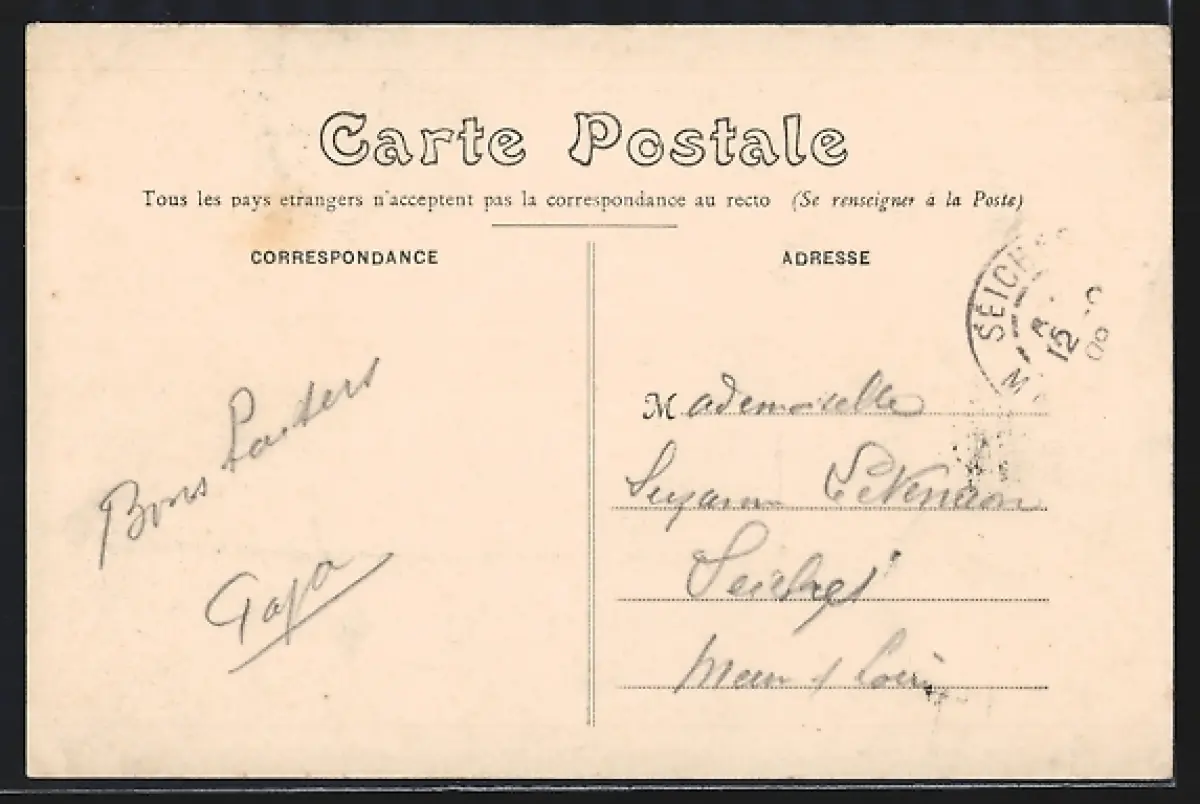 Carte Postale
Tous les pays etrangers n'acceptent pas la correspondance au recto (Se renseigner à la Poste)
CORRESPONDANCE
ADRESSE
SEICH
12
08
Mademoiselle
Suzanne
Seiches
Bons
Loire